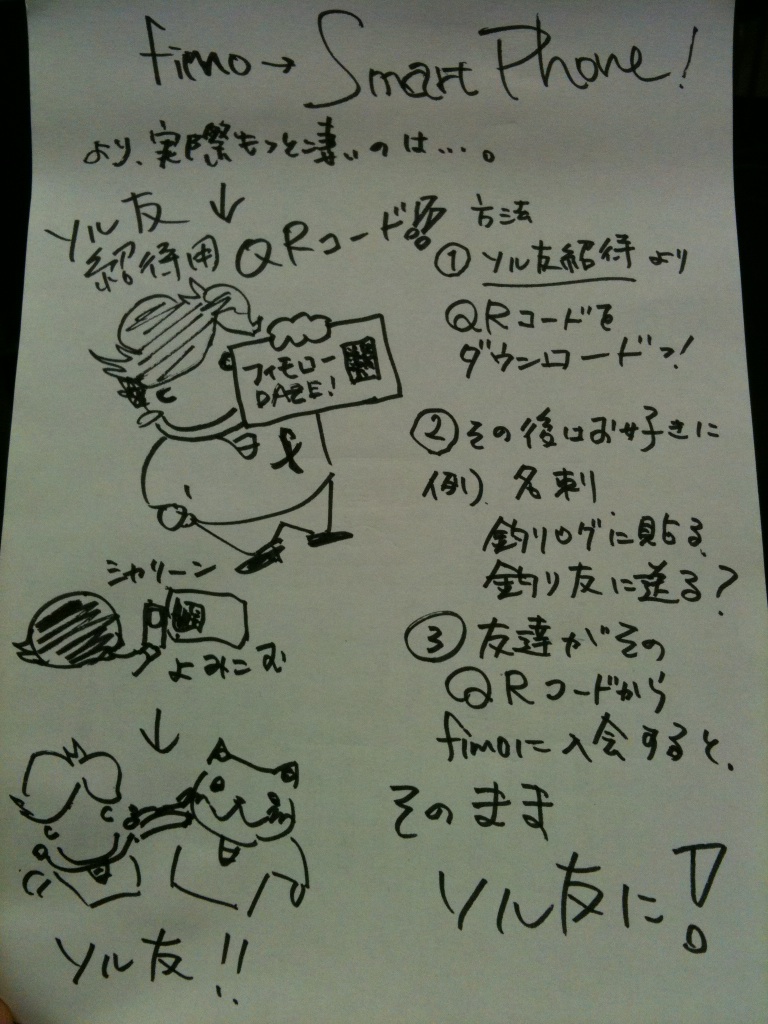 fimo→Smart Phone!
より、実際もっと凄いのは…。
↓
ソル友
紹待用QRコード!!
フィモロー
DAZE!
f
シャリーン
よみこむ
↓
ソル友!!
方法
① ソル友紹待より
QRコードを
ダウンロードっ!
② その後はお好きに
例)名刺
釣りログに貼る、
釣り友に送る?
③ 友達がその
QRコードから
fimoに入会すると、
そのまま
ソル友に!